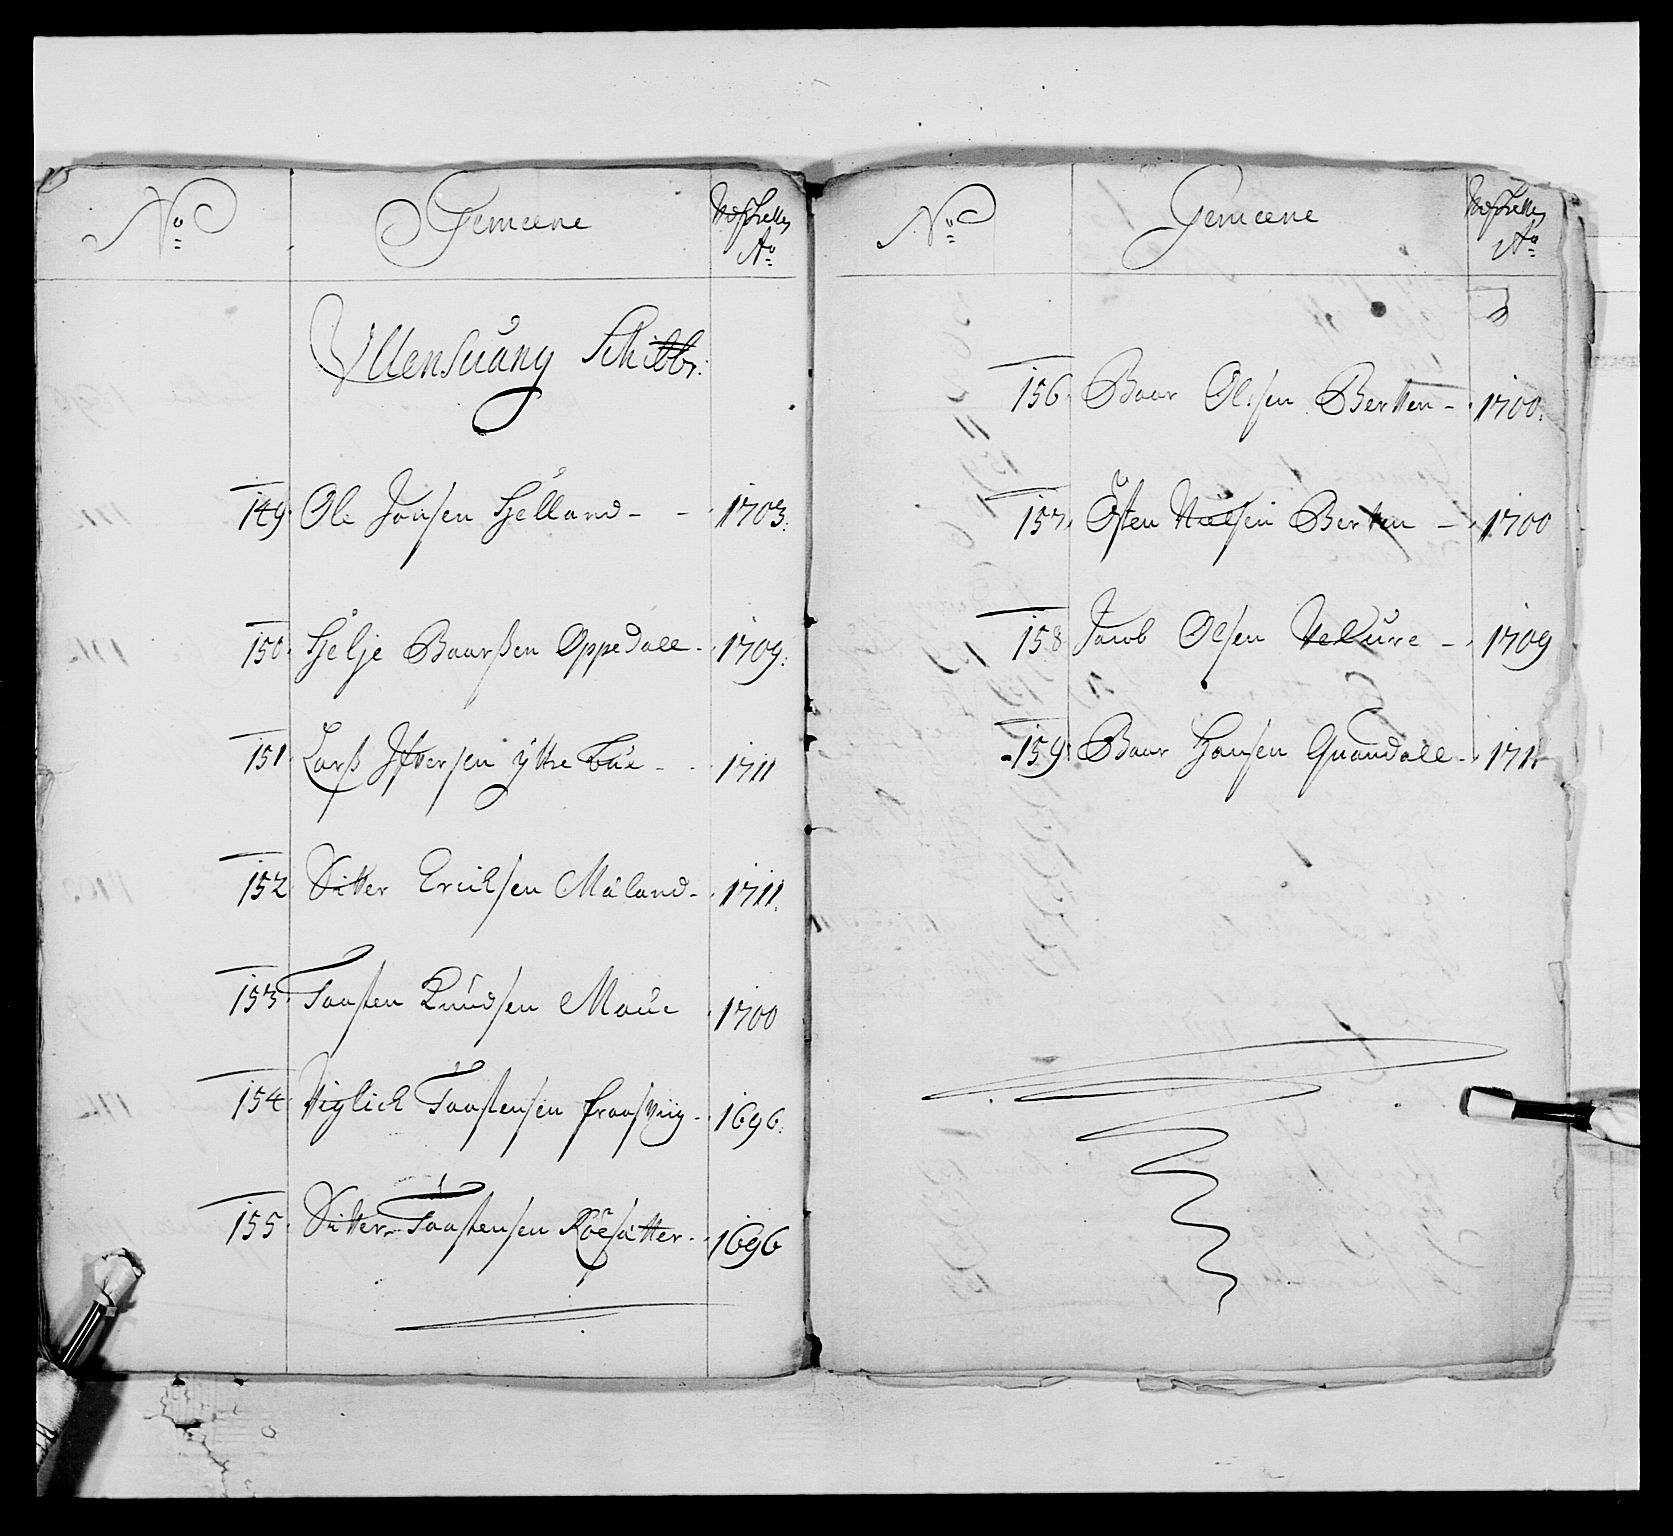 No
Gemeene
Ao
Ullensuang Schibbr:
149. Ole Jonsen Hielland - - 1703.
150. Helje Baarßen Oppedall - 1709.
151 Larß Iffversen ÿttre Büe - - 1711
152 Sitter Erichsen Måland - 1711.
153 Taasten Knudsen Moüe 1700
154 Viglich Taastensen fraasviig - 1696.
155. Sitter Taastensen Röesätter - 1696
No
Gemeene
Ao
156. Baar Olsen Berven - 1700.
157. Østen Nielsen Berven - 1700
158 Jacob Olsen Velure - 1709
159. Baar Hansen Quandall - 1711